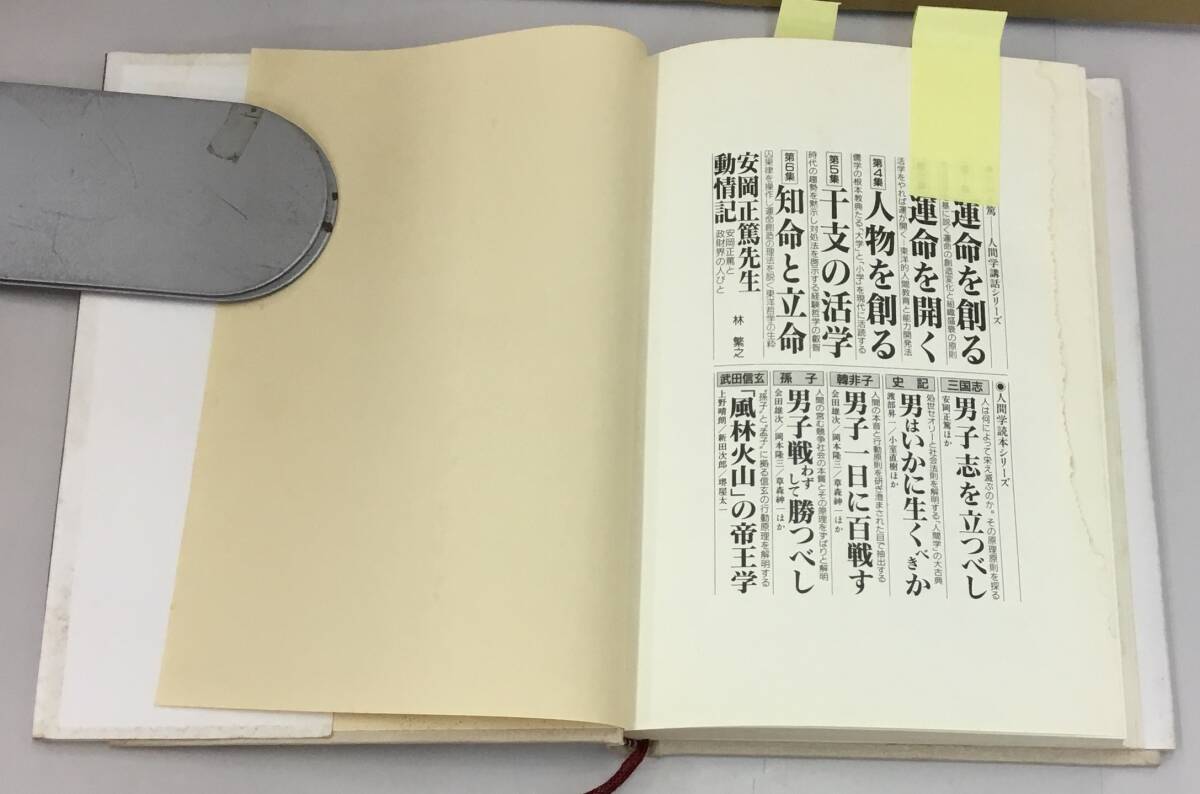 篤──人間学講話シリーズ
運命を創る
基に説く運命の創造変化と組織盛衰の原則
運命を開く
活学をやれば運が開く─東洋的人間教育と能力開発法
第4集 人物を創る
儒学の根本教典たる、「大学」と、「小学」を現代に活読する
第5集 干支の活学
時代の趨勢を黙示し対処法を啓示する経験哲学の叡智
第6集 知命と立命
因果律を操作し運命創造の理法を説く東洋哲学の生粋
安岡正篤先生動情記
安岡正篤と
政財界の人びと
林 繁之
●人間学読本シリーズ
三国志
人は何によって栄え滅ぶのか。その原理原則を探る
男子志を立つべし
安岡正篤ほか
史記
処世セオリーと社会法則を解明する、「人間学」の大古典
男はいかに生くべきか
渡部昇一/小室直樹ほか
韓非子
人間の本音と行動原則を研ぎ澄まされた目で抽出する
男子一日に百戦す
会田雄次/岡本隆三/草森紳一ほか
孫子
人間の営む競争社会の本質とその原理をずばりと解明
男子戦わずして勝つべし
会田雄次/岡本隆三/草森紳一ほか
武田信玄
“孫子”と“孟子”に拠る信玄の行動原理を解明する
「風林火山」の帝王学
上野晴朗/新田次郎/堺屋太一